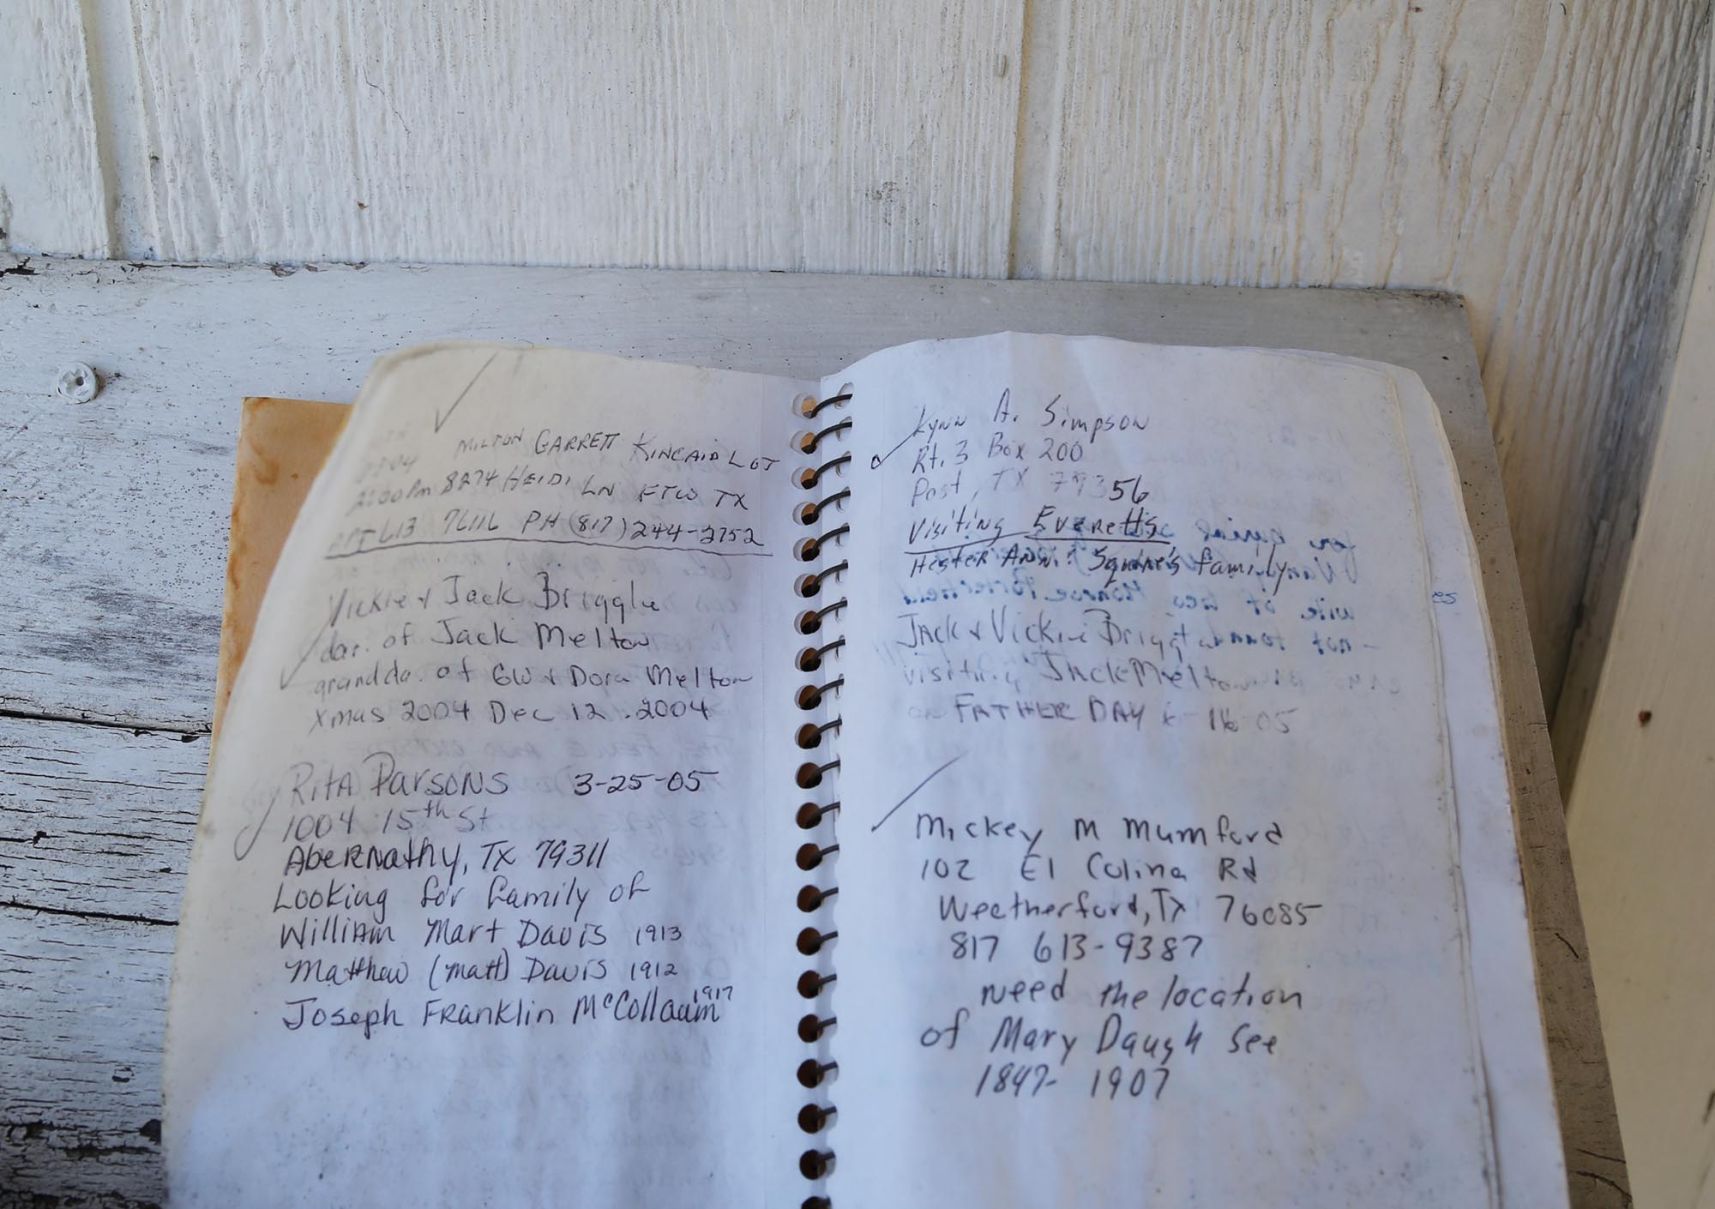 MILTON GARRETT KINCAID LOT
2:00 Pm 8274 HEIDI LN FTW TX
APT 613 76116 PH (817) 244-2752
Vickie & Jack Briggle
dar. of Jack Melton
grandda. of GW & Dora Melton
Xmas 2004 Dec 12 . 2004
RitA PArsoNs 3-25-05
1004 15th St
AbeRNAthy, TX 79311
Looking for family of
WilliAm Mart Davis 1913
Matthew (Matt) Davis 1912
Joseph FRanklin McCollaum 1917
Lynn A. Simpson
Rt. 3 Box 200
Post, TX 79356
Visiting Everetts
Hester Ann: Squire's family
JAck & Vickie
visiting Jack Melton
on FATHER DAY 6-16-05
Mickey M Mumford
102 El Colina Rd
Weatherford, Tx 76085
817 613-9387
need the location
of Mary Daugh See
1847- 1907